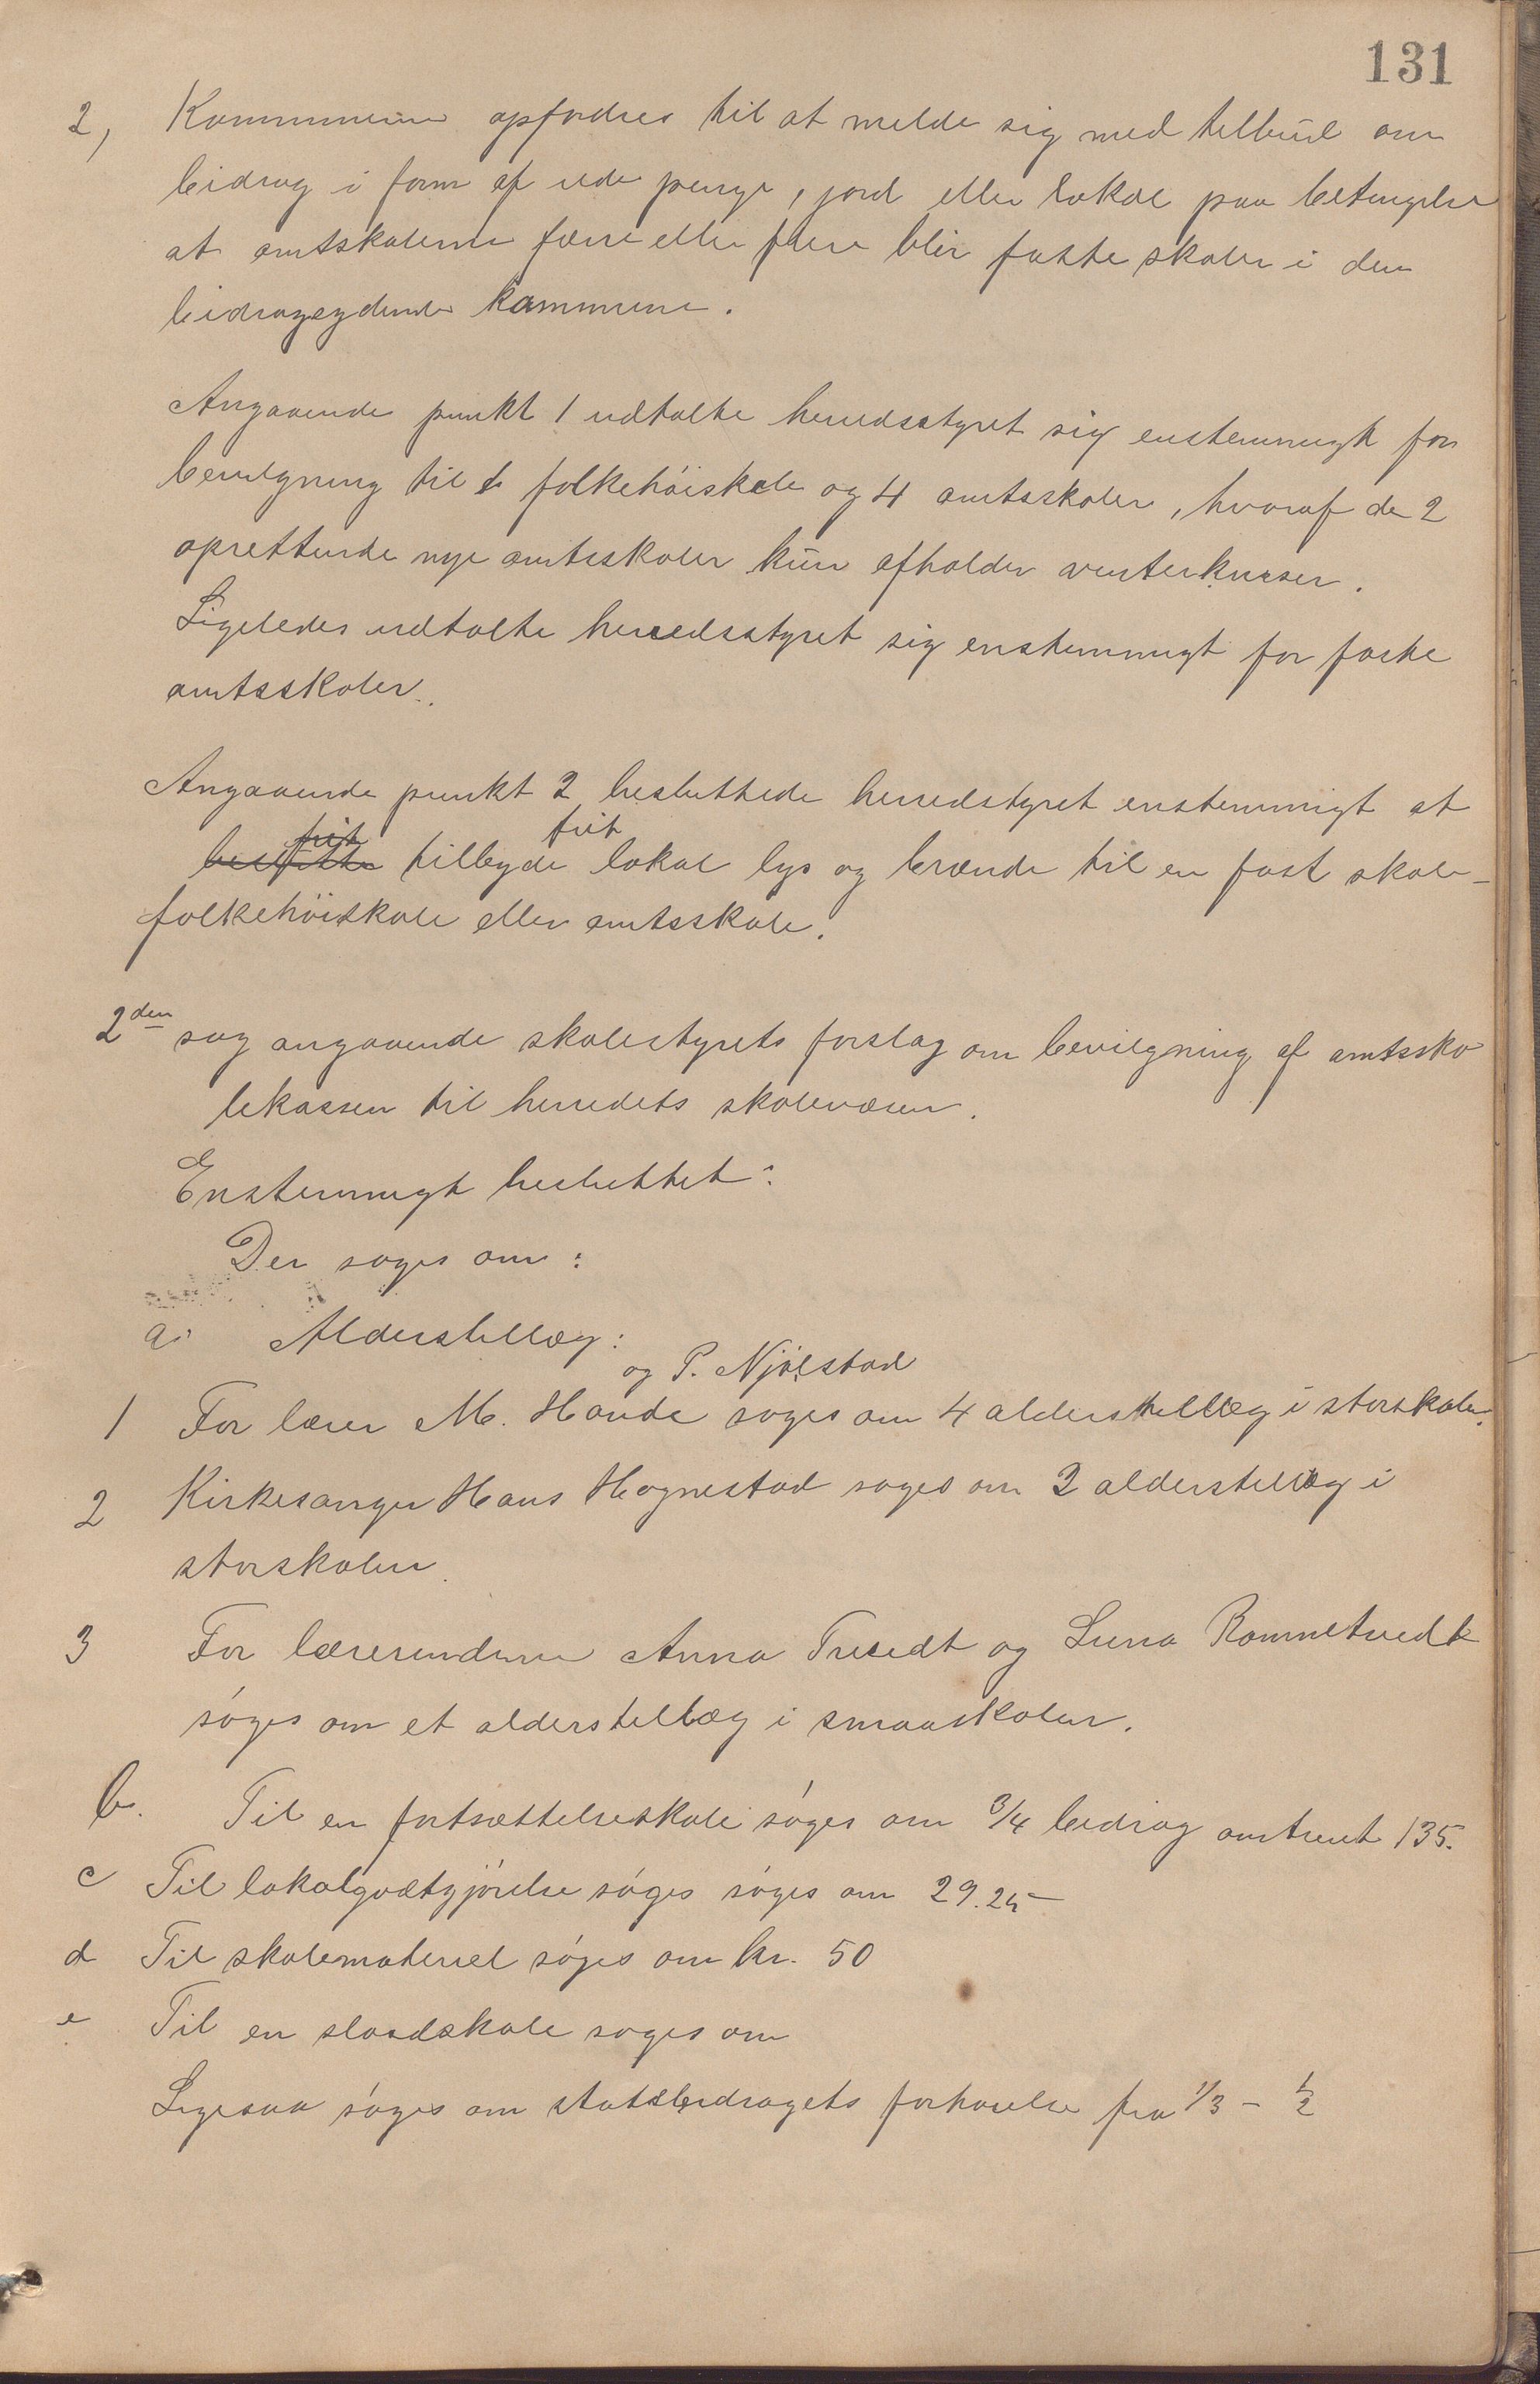 131
2, Kommunerne opfordres til at melde sig med tilbud om
bidrag i form af rede penge, jord eller lokale paa betingelse
at amtskolerne færre eller flere blir faste skoler i den
bidragsydende kommune.
Angaaende punkt 1 udtalte herredsstyret sig enstemmigt for
bevilgning til 1 folkehöiskole og 4 amtsskoler, hvoraf de 2
oprettende nye amtsskoler kun afholder vinterkurser.
Ligeledes udtalte herredsstyret sig enstemmigt for faste
amtsskoler.
Angaaende punkt 2 besluttede herredstyret enstemmigt at
frit frit
tilbyde lokal lys og brænde til en fast skole-
folkehöiskole eller amtsskole.
2den sag angaaende skolestyrets forslag om bevilgning af amtssko
lekassen til herredets skolevæsen.
Enstemmigt besluttet:
Der søges om:
a. Alderstillæg:
og P. Njølstad
1 For lærer M. Haude søges om 4 alderstillæg i storskolen.
2 Kirkesanger Hans Hognestad søges om 2 alderstillæg i
storskolen.
3 For lærerinderne Anna Tvedt og Rommetvedt
söges om et alderstillæg i smaaskolen.
b. Til en fortsættelseskole söges om 3/4 bidrag omtrent 135.
c Til lokalgodtgjörelse söges söges om 29.25
d Til skolemateriel söges om kr. 50
e Til en sløidskole søges om
Ligesaa söges om statsbidragets forhøielse fra 1/3 - 1/2